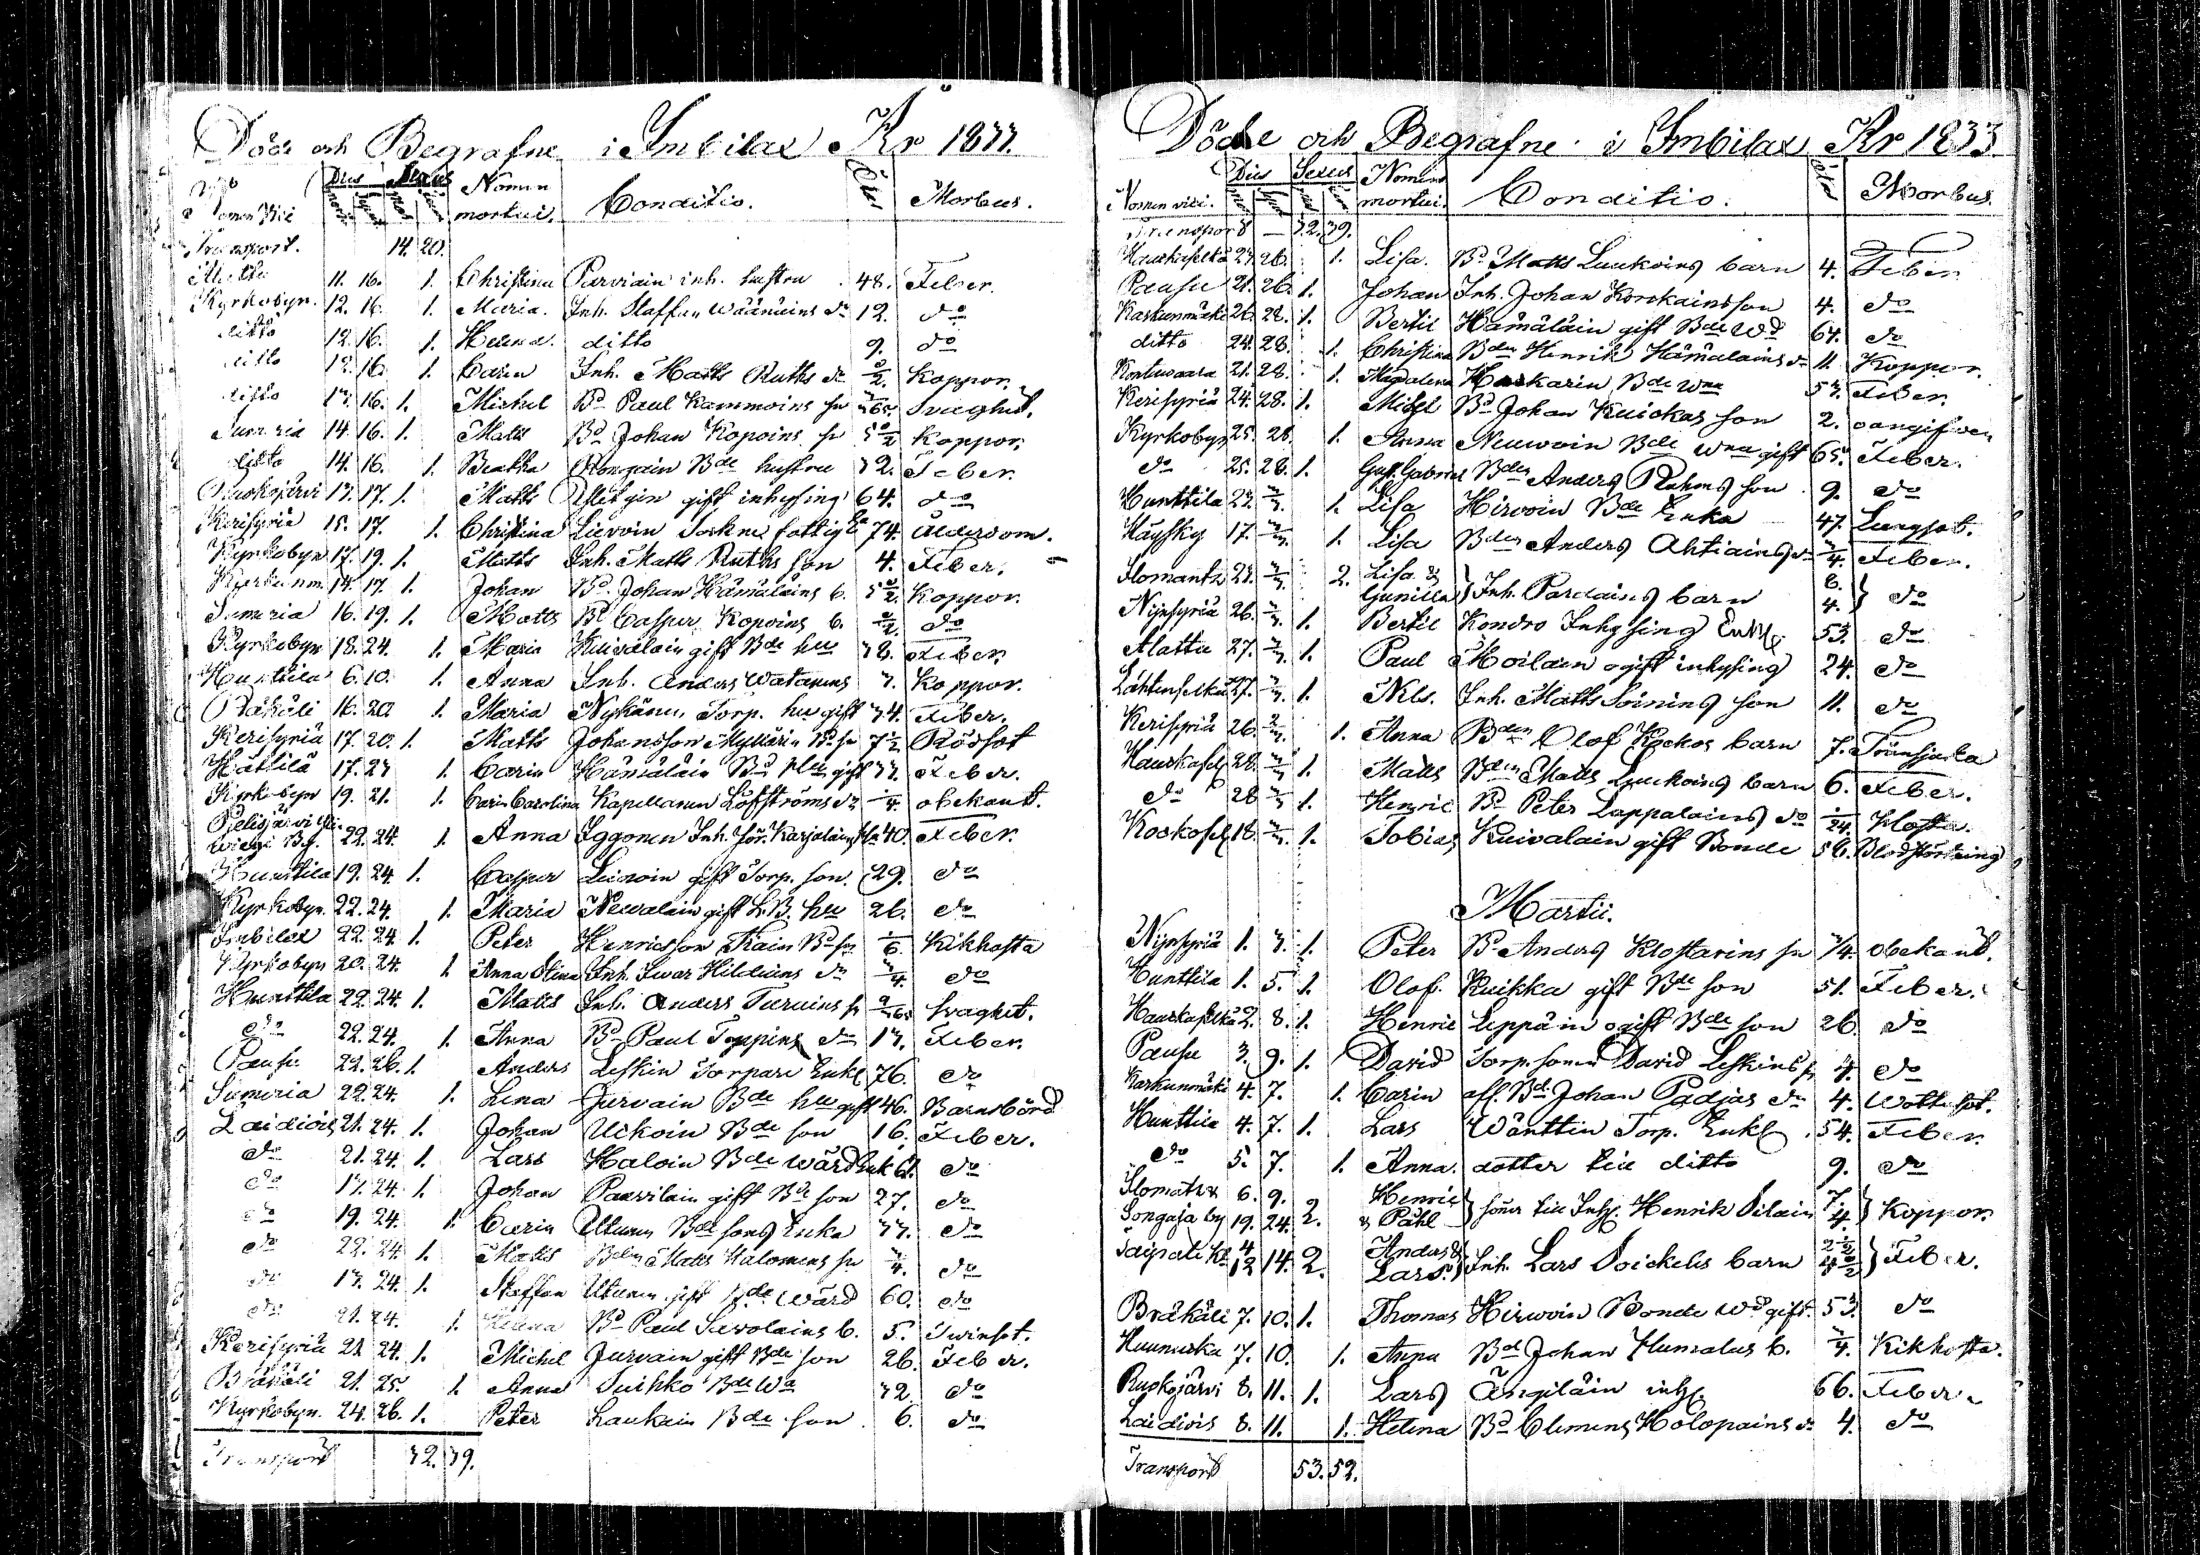 Döde och Begrafne i Imbilax År 1833.
Nomen Vici Dies Sexus Nomen mortui. Conditio. Morbus.
Transport. 14. 20.
11. 16. 1. Christina Parviain inh. hustru 48. Feber.
Kyrkobyn. 12. 16. 1. Maria. Inh. Staffan Wäänäins dr 12. do
ditto 12. 16. 1. Helena. ditto 9. do
ditto 12. 16. 1. Carin Inh. Matts Ruths dr Koppor.
ditto 13. 16. 1. Michel Bd Paul Kammoins sn Svaghet.
Sumeria 14. 16. 1. Matts Bd Johan Kopoins sn Koppor.
ditto 14. 16. 1. Beatha Rongain Bde hustru 32. Feber.
Ruokojärvi 13. 17. 1. Matts gift inhysing 64. do
Kerisyriä 15. 17. 1. Christina Liervin Sockne fattig 74. Ålderdom.
Kyrkobyn 17. 19. 1. Matts Inh. Matts Ruths son 4. Feber.
14. 17. 1. Johan Bd. Johan Hämäläins b. Koppor.
Sumeria 16. 19. 1. Matts Bd Casper Kopoins b. do
Kyrkobyn 18. 24. 1. Maria Kuivalain gift Bde hu 38. Feber.
Hunttila 6. 10. 1. Anna Inh. Anders Watanens 3. Koppor.
Räkäli 16. 20. 1. Maria Nykänen, Torp. hu gift 34. Feber.
Kerisyriä 17. 20. 1. Matts Johansson Myllärin Bd sn 7 1/2 Rödsot
Hättilä 17. 23 1. Carin Hämäläin Bd hu gift 33. Feber.
Kyrkobyn 19. 21. 1. Carin Carolina Kapellanen Löfströms dr obekant.
Pelisjärvi
22. 24. 1. Anna Iggonen Inh. Jör. Karjalains 40. Feber.
Hunttila 19. 24. 1. Casper Liervoin gift Torp. son. 29. do
Kyrkobyn. 22. 24. 1. Maria Nevalain gift hu 26. do
Imbilax 22. 24. 1. Peter Henricsson Bd sn Kikhosta
Kyrkobyn 20. 24. 1. Anna Stina Inh. Ivar Hildiens dr 3/4. do
Hunttila 22. 24. 1. Matts Inh. Anders Turuins sn svaghet.
do 22. 24. 1. Anna Bd Paul Toppins dr 13. Feber.
Pausu 22. 26. 1 Anders Leskin Torpare Enkl 76. do
Sumeria 22. 24. 1. Lena Jurvain Bde hu gift 46. Barnsbörd
Laidiois 21. 24. 1. Johan Uckoin Bde son 16. Feber.
do 21. 24. 1. Lars Haloin Bde Wärd Enk 61. do
do 13. 24. 1. Johan Paavilain gift Bde son 27. do
do 19. 24. 1. Carin Uturen Bde sons Enka 33. do
do 22. 24. 1. Matts Bden Matts Halonens sn 3/4. do
do 13. 24. 1. Staffan Uturen gift Bde Wärd 60. do
do 21. 24. 1. Helena Bd Paul Savolains b. 5. Tvinsot.
Kerisyriä 21. 24. 1. Michel Jurvain gift Bde son 26. Feber.
Bräkäli 21. 25. 1. Anna Suihko Bde Wa 32 do
Kyrkobyn. 24. 26. 1. Peter Laukain Bde son. 6. do
Transport 32. 39.
Döde och Begrafne i Imbilax År 1833.
Nomen vici. Dies Sexus Nomen mortui. Conditio. Morbus.
Transport — 32. 39.
Hauskaselkä 23. 26. 1. Lisa. Bd Matts Luukoins barn 4. Feber.
Pausu 21. 26. 1. Johan Inh. Johan Korckains son 4. do
Karkunmäki 26. 28. 1. Bertil Hämäläin gift Bde Wd 64. do
ditto 24. 28. 1. Christina Bden Henrik Hämälains dr 11. Koppor.
Kontuvaara 21. 28. 1. Magdalena Haskarin Bde Wna 53. Feber.
Kerisyriä 24. 28. 1. Michel Bd Johan Kuickas son 2. oangifven
Kyrkobyn 25. 28. 1. Anna Neuwoin Bde Wna gift 65. Feber.
do 25. 28. 1. Gust. Gabriel Bden Anders Rahms son 9. do
Hunttila 23. 1. Lisa Hirvoin Bde Enka 47. Lungsot.
Häysky 17. 1. Lisa Bden Anders Ahtiains dr 3/4. Feber.
Ilomants 23. 2. Lisa & Gunilla } Inh. Pardains barn 6. 4. } do
Nysyriä 26. 1. Bertil Kondro Inhysing Enkl. 53. do
Alattu 27. 1. Paul Moilain ogift inhysing 24. do
Lahtenselkä 27. 1. Nils. Inh. Matts Soinins son 11. do
Kerisyriä 26. 1. Anna Bden Olof Kockos barn 7. Trånsjuka
Hauskasel 28. 1. Matts Bden Matts Luukoins barn 6. Feber.
do 28 1. Henric Bd Peter Lappalains do 1/24. Hosta.
Kockosel 18. 1. Tobias Kuivalain gift Bonde 56. Blodstörtning
Martii.
Nysyriä 1. 3. 1. Peter Bd Anders Klostarins sn 3/4. obekant.
Hunttila 1. 5. 1. Olof. Kuikka gift Bde son 51. Feber.
Hauskaselkä 2. 8. 1. Henric Leppäin ogift Bde son 26. do
Pausu 3. 9. 1. David Torp. sonen David Leskins sn 4. do
Karkunmäki 4. 7. 1. Carin afl. Bd. Johan Padjas dr 4. Wattusot.
Hunttila 4. 7. 1. Lars Wänttin Torp. Enkl. 54. Feber.
do 5. 7. 1. Anna. dotter till ditto 9. do
Ilomants 6. 9. Henric
Songaja by 19. 24. 2. & Påhl } söner till Inh. Henrik Silain 7. 4. } Koppor.
Suistamo 4 12 14. 2. Anders & Lars } Inh. Lars Soickelis barn } Feber.
Bräkäli 7. 10. 1. Thomas Hirvoin Bonde Wd gift. 53. do
Huunuska 7. 10. 1. Anna Bd Johan Humalas b. 3/4. Kikhosta.
Ruokojärvi 8. 11. 1. Lars Ängiläin inh. 66. Feber.
Laidiois 8. 11. 1. Helena Bd Clemens Holopains dr 4. do
Transport 53. 52.